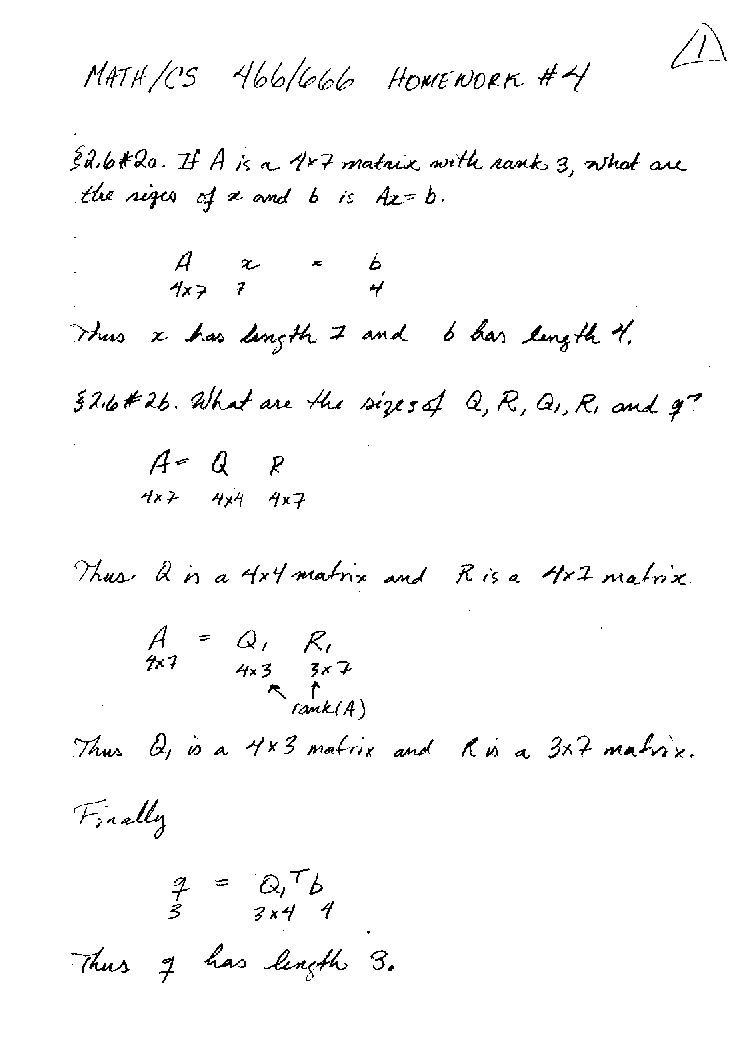 1
MATH/CS 466/666 HOMEWORK #4
§2.6#2a. If A is a 4×7 matrix with rank 3, what are
the sizes of x and b is Ax=b.
A x = b
4×7 7 4
Thus x has length 7 and b has length 4.
§2.6#2b. What are the sizes of Q, R, Q₁, R₁ and q?
A = Q R
4×7 4×4 4×7
Thus Q is a 4×4 matrix and R is a 4×7 matrix
A = Q₁ R₁
4×7 4×3 3×7
↖ ↑
rank(A)
Thus Q₁ is a 4×3 matrix and R is a 3×7 matrix.
Finally
q = Q₁ᵀb
3 3×4 4
Thus q has length 3.